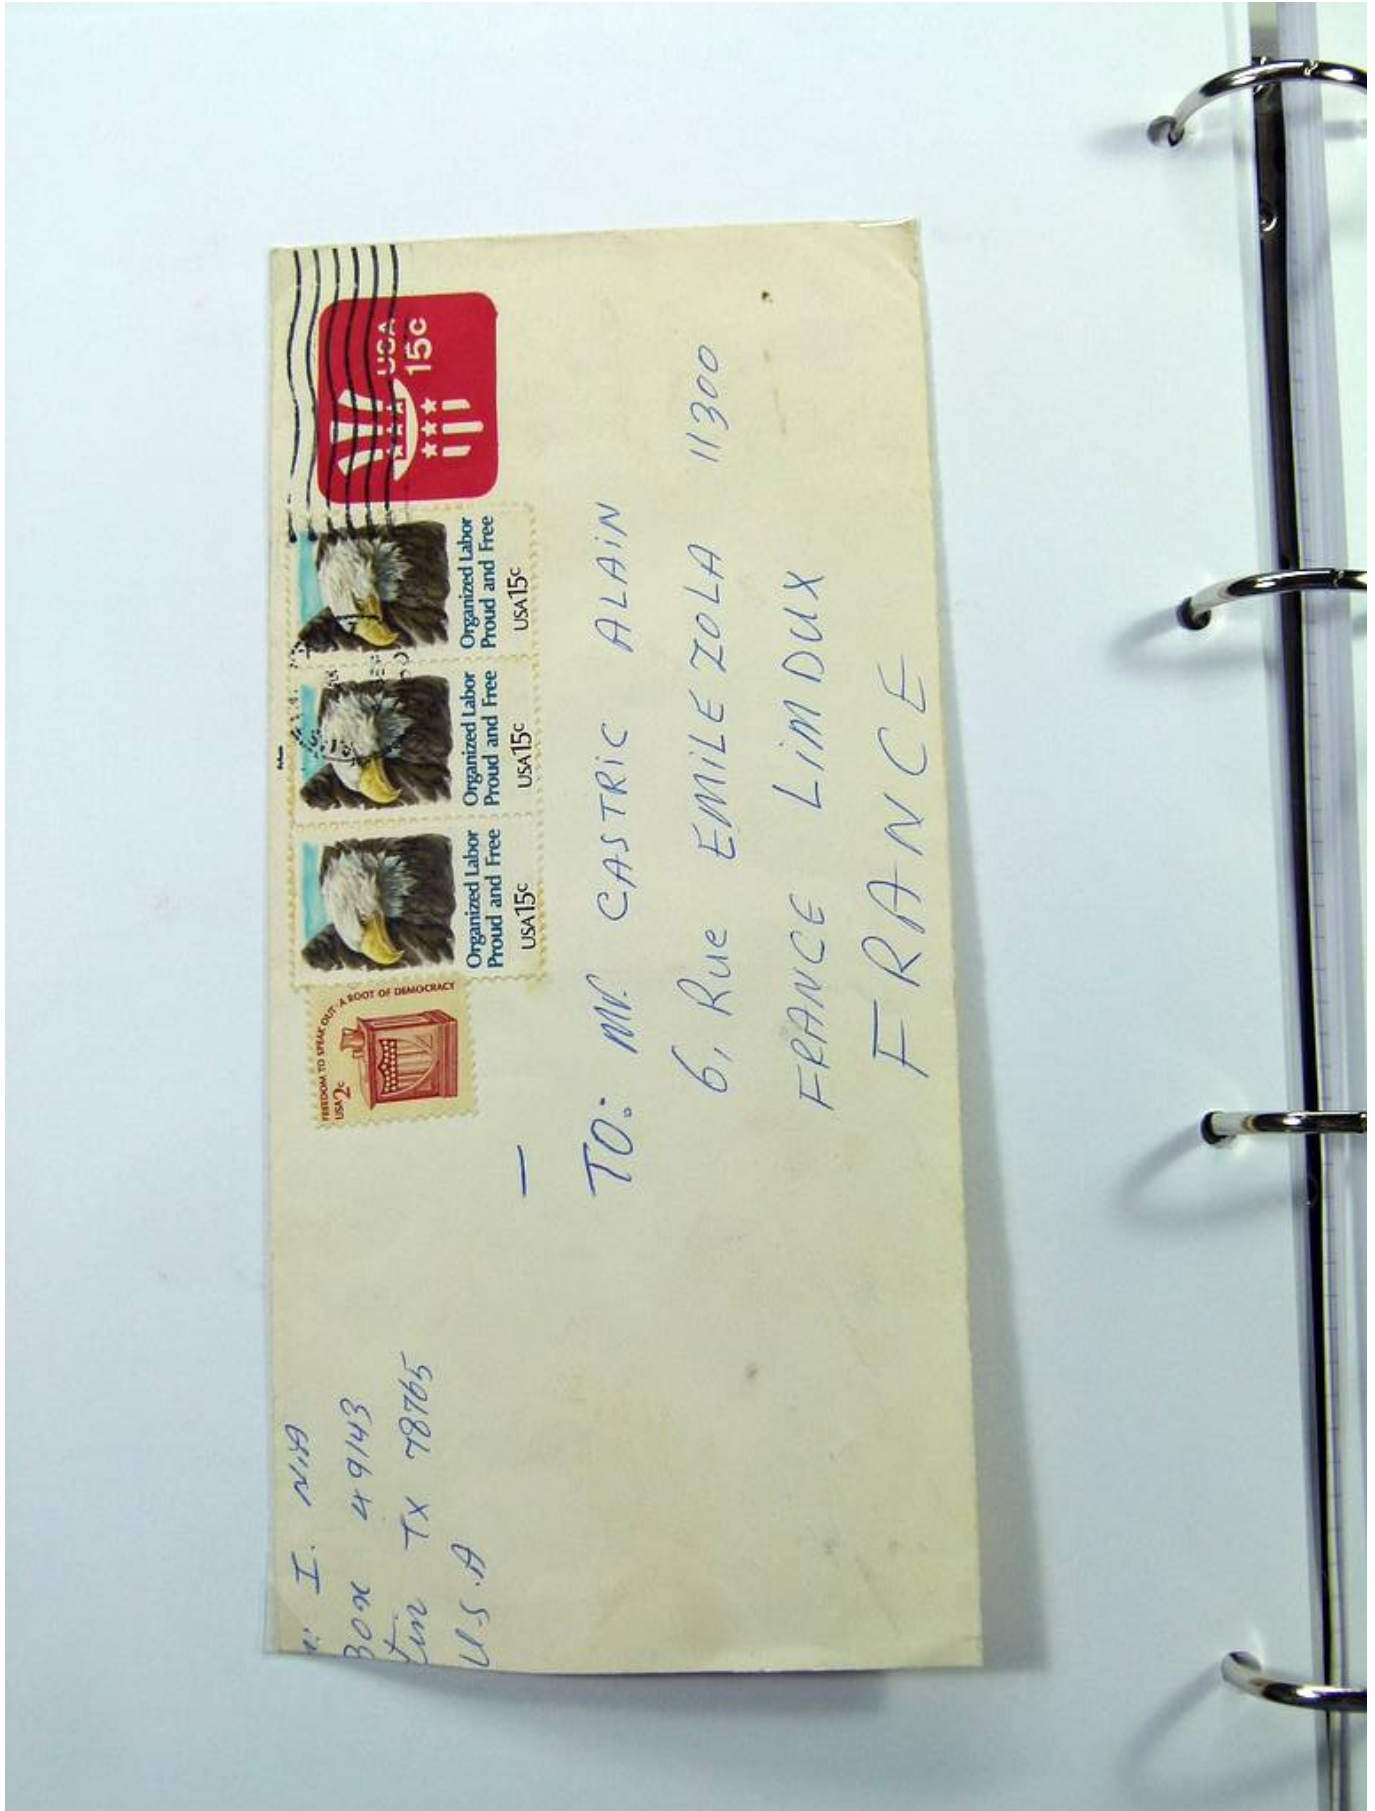 I. NIA
Box 49143
TX 78765
U.S.A
FREEDOM TO SPEAK OUT · A ROOT OF DEMOCRACY
USA 2c
Organized Labor
Proud and Free
USA 15c
Organized Labor
Proud and Free
USA 15c
Organized Labor
Proud and Free
USA 15c
USA
15c
TO: Mr. CASTRIC ALAIN
6, Rue EMILE ZOLA 11300
FRANCE LIMOUX
FRANCE